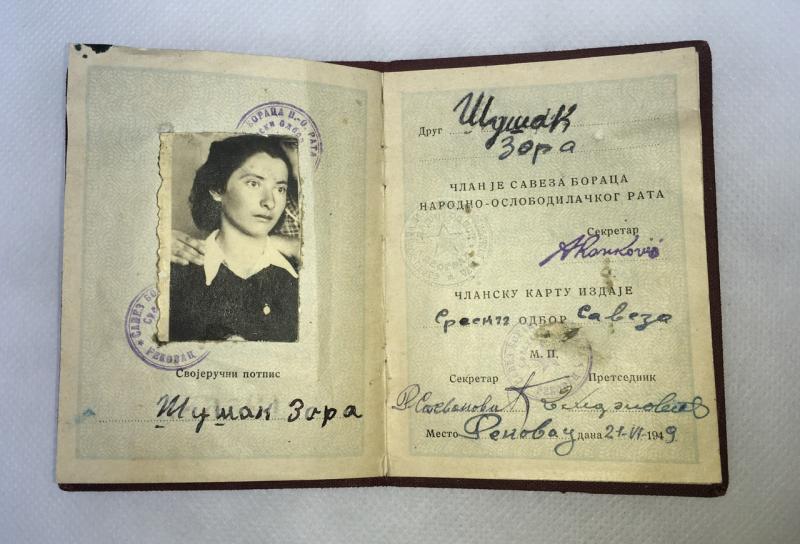 БОРАЦА Н.-О. РАТА
САВЕЗ БО
РЕКОВАЦ
Својеручни потпис
Шушак Зора
Друг Шушак
Зора
ЧЛАН ЈЕ САВЕЗА БОРАЦА
НАРОДНО-ОСЛОБОДИЛАЧКОГ РАТА
Секретар
ARanković
ЧЛАНСКУ КАРТУ ИЗДАЈЕ
Срески ОДБОР Савеза
М. П.
Секретар Претседник
Место Рековац дана 21-VI-1949